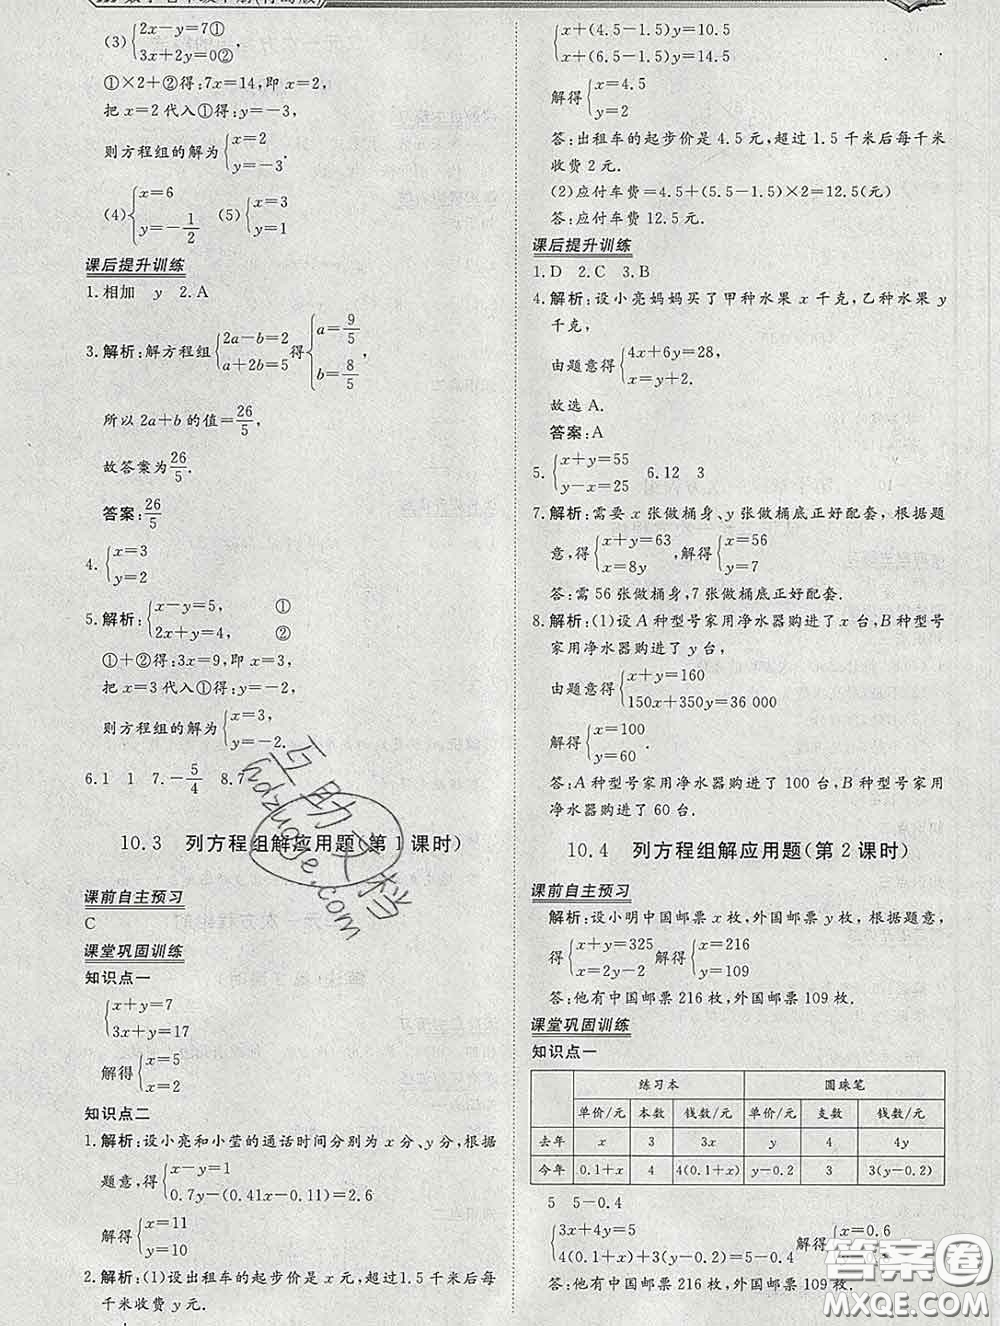 (3){2x-y=7①
3x+2y=0②
①×2+②得:7x=14,即 x=2,
把 x=2 代入①得:y=-3,
则方程组的解为{x=2
y=-3.
(4){x=6
y=-1/2
(5){x=3
y=1
课后提升训练
1.相加 y 2.A
3.解析:解方程组{2a-b=2
a+2b=5
得{a=9/5
b=8/5
,
所以 2a+b 的值=26/5,
故答案为26/5.
答案:26/5
4.{x=3
y=2
5.解析:{x-y=5, ①
2x+y=4, ②
①+②得:3x=9,即 x=3,
把 x=3 代入①得:y=-2,
则方程组的解为{x=3,
y=-2.
6.1 1 7.-5/4 8.7
10.3 列方程组解应用题(第 1 课时)
课前自主预习
C
课堂巩固训练
知识点一
{x+y=7
3x+y=17
解得{x=5
y=2
知识点二
1.解析:设小亮和小莹的通话时间分别为 x 分、y 分,根据
题意,得{x-y=1
0.7y-(0.41x-0.11x)=2.6
解得{x=11
y=10
2.解析:(1)设出租车的起步价是 x 元,超过1.5 千米后每
千米收费 y 元.
{x+(4.5-1.5)y=10.5
x+(6.5-1.5)y=14.5
解得{x=4.5
y=2
答:出租车的起步价是 4.5 元,超过 1.5 千米后每千米
收费 2 元.
(2)应付车费=4.5+(5.5-1.5)×2=12.5(元)
答:应付车费 12.5 元.
课后提升训练
1.D 2.C 3.B
4.解析:设小亮妈妈买了甲种水果 x 千克,乙种水果 y
千克,
由题意得{4x+6y=28,
x=y+2.
故选 A.
答案:A
5.{x+y=55
y-x=25
6.12 3
7.解析:需要 x 张做桶身、y 张做桶底正好配套,根据题
意,得{x+y=63
x=8y
,解得{x=56
y=7
答:需 56 张做桶身,7 张做桶底正好配套.
8.解析:(1)设 A 种型号家用净水器购进了 x 台,B 种型号
家用净水器购进了 y 台,
由题意得{x+y=160
150x+350y=36 000
解得{x=100
y=60.
答:A 种型号家用净水器购进了 100 台,B 种型号家用
净水器购进了 60 台.
10.4 列方程组解应用题(第 2 课时)
课前自主预习
解析:设小明中国邮票 x 枚,外国邮票 y 枚,根据题意,
得{x+y=325
x=2y-2
解得{x=216
y=109
答:他有中国邮票 216 枚,外国邮票 109 枚.
课堂巩固训练
知识点一
练习本 圆珠笔
单价/元 本数 钱数/元 单价/元 支数 钱数/元
去年 x 3 3x y 4 4y
今年 0.1+x 4 4(0.1+x) y-0.2 3 3(y-0.2)
5 5-0.4
{3x+4y=5
4(0.1+x)+3(y-0.2)=5-0.4
解得{x=0.6
答:他有中国邮票 216 枚,外国邮票 109 枚.
互助文档
hdzuoye.com
答案圈
MXQE.COM